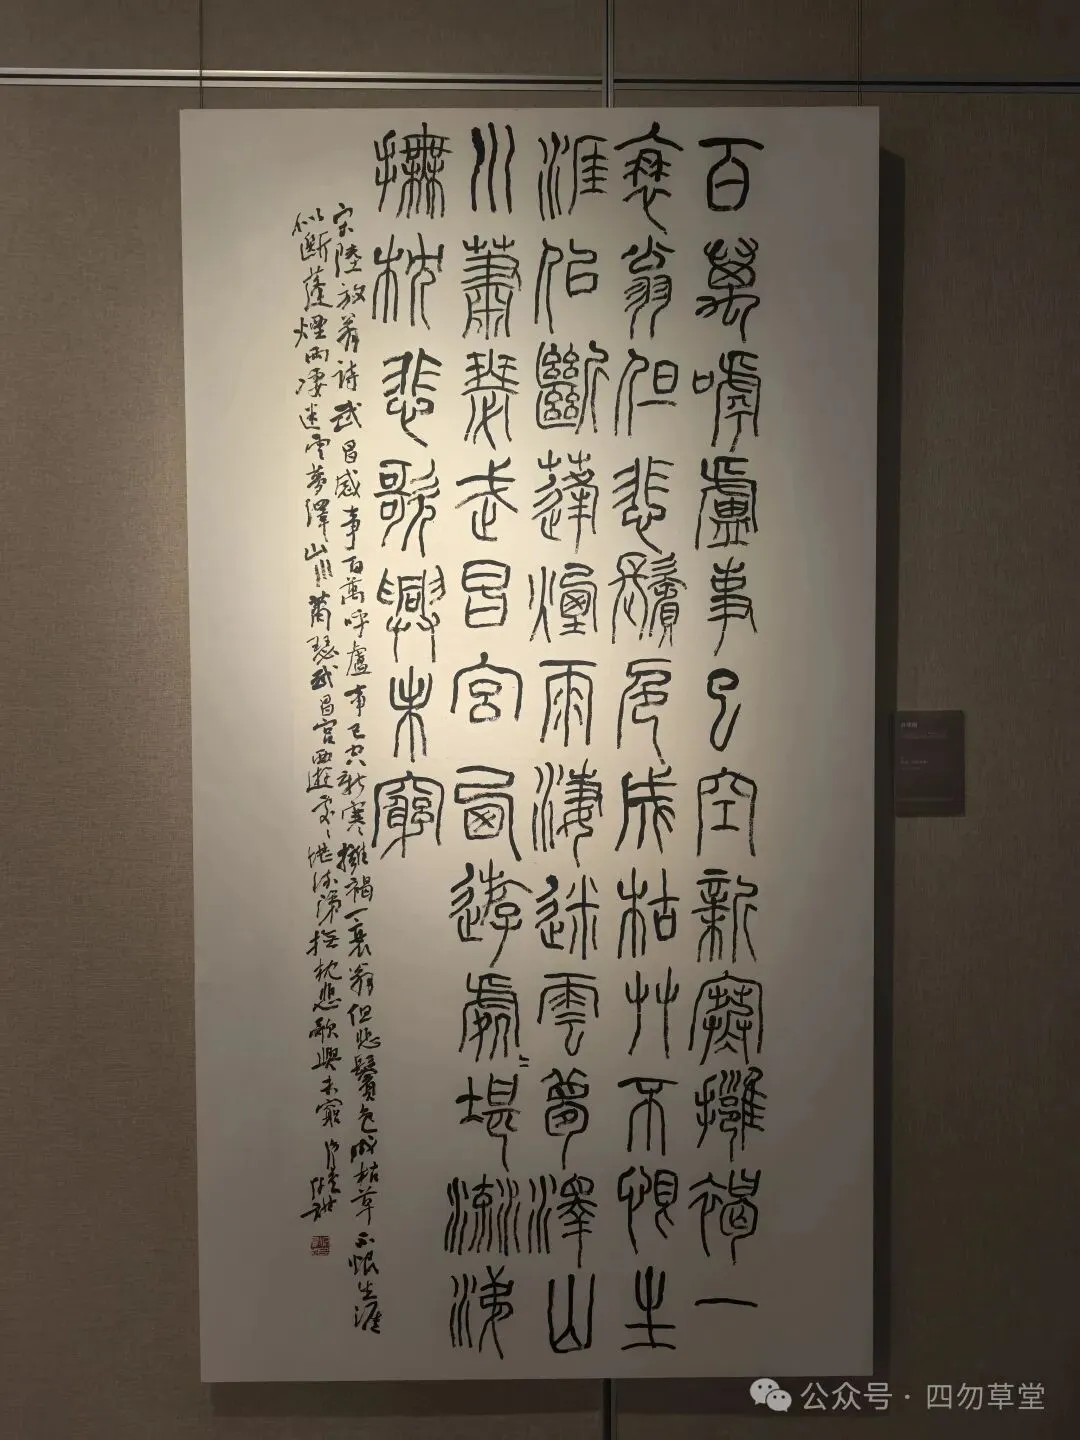 百萬嘑盧事已空新寒擁褐一
衰翁但悲鬢色成枯艸不恨生
涯佀斷蓬煙雨淒迷雲夢澤山
川蕭瑟武昌宮西遊處〻堪流涕
撫枕悲歌興未窮
宋陸放翁詩武昌感事百萬呼盧事已空新寒擁褐一衰翁但悲鬢色成枯草不恨生涯
似斷蓬煙雨淒迷雲夢澤山川蕭瑟武昌宮西遊處〻堪流涕撫枕悲歌興未窮
公众号 · 四勿草堂